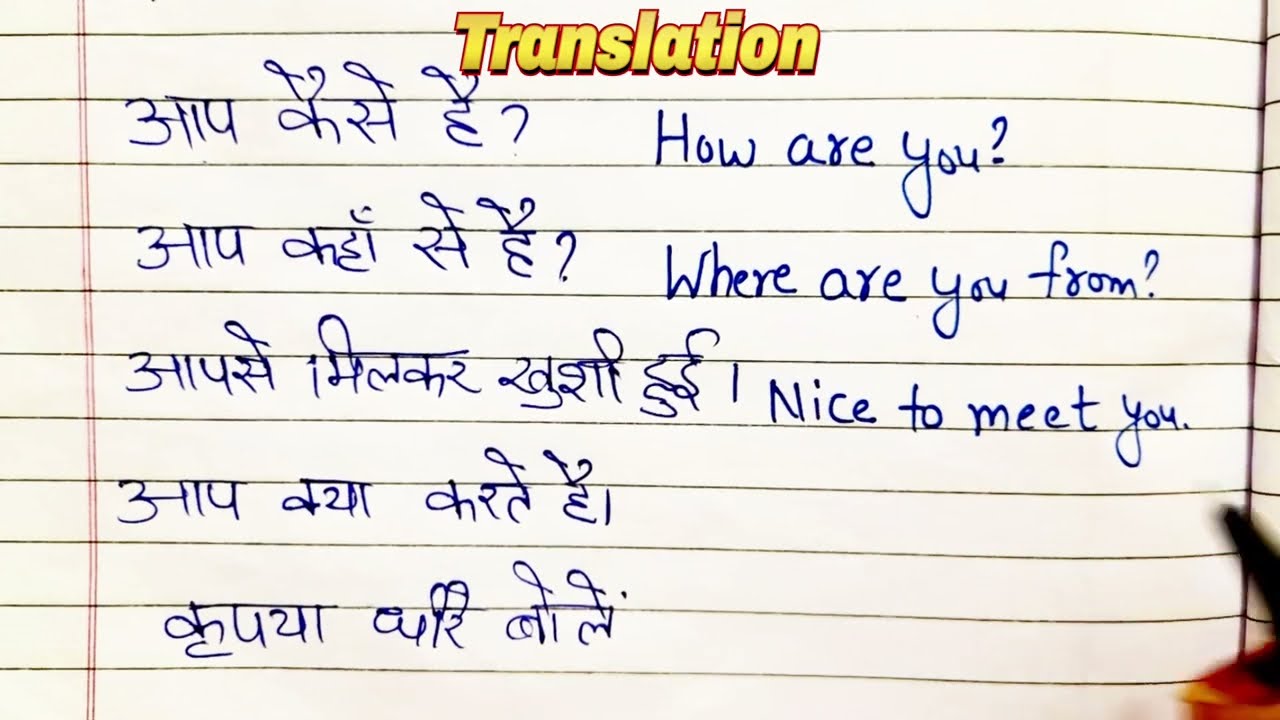 Translation
आप कैसे है? How are you?
आप कहाँ से है? Where are you from?
आपसे मिलकर खुशी हुई। Nice to meet you.
आप क्या करते है।
कृपया धीरे बोलें